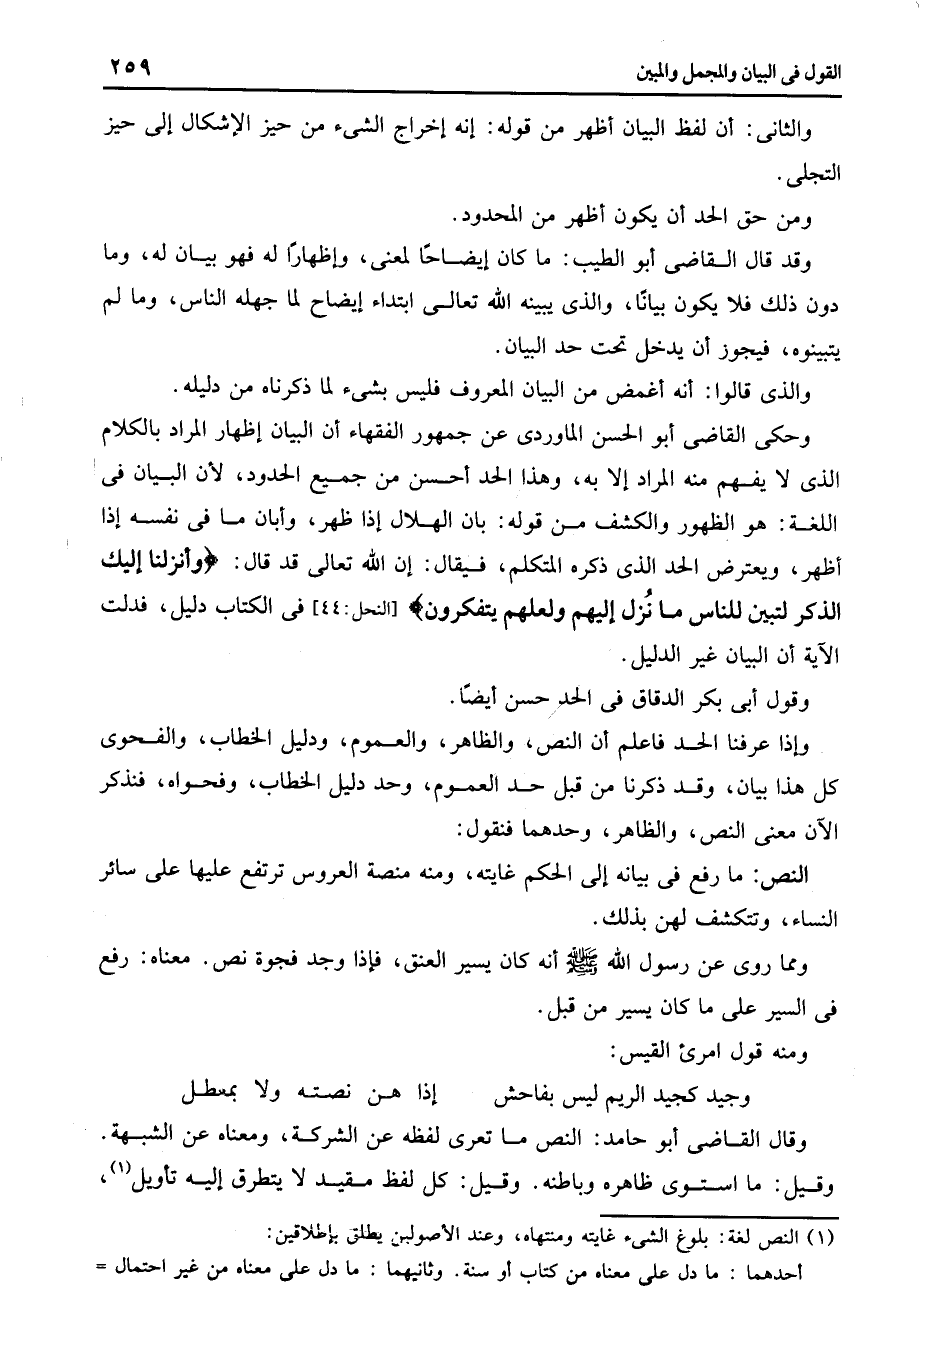 القول فى البيان والمجمل والمبين ٢٥٩
والثانى: أن لفظ البيان أظهر من قوله: إنه إخراج الشىء من حيز الإشكال إلى حيز
التجلى.
ومن حق الحد أن يكون أظهر من المحدود.
وقد قال القاضى أبو الطيب: ما كان إيضاحًا لمعنى، وإظهارًا له فهو بيان له، وما
دون ذلك فلا يكون بيانًا، والذى يبينه الله تعالى ابتداء إيضاح لما جهله الناس، وما لم
يتبينوه، فيجوز أن يدخل تحت حد البيان.
والذى قالوا: أنه أغمض من البيان المعروف فليس بشىء لما ذكرناه من دليله.
وحكى القاضى أبو الحسن الماوردى عن جمهور الفقهاء أن البيان إظهار المراد بالكلام
الذى لا يفهم منه المراد إلا به، وهذا الحد أحسن من جميع الحدود، لأن البيان فى
اللغة: هو الظهور والكشف من قوله: بان الهلال إذا ظهر، وأبان ما فى نفسه إذا
أظهر، ويعترض الحد الذى ذكره المتكلم، فيقال: إن الله تعالى قد قال: ﴿وأنزلنا إليك
الذكر لتبين للناس ما نُزل إليهم ولعلهم يتفكرون﴾ [النحل:٤٤] فى الكتاب دليل، فدلت
الآية أن البيان غير الدليل.
وقول أبى بكر الدقاق فى الحد حسن أيضًا.
وإذا عرفنا الحد فاعلم أن النص، والظاهر، والعموم، ودليل الخطاب، والفحوى
كل هذا بيان، وقد ذكرنا من قبل حد العموم، وحد دليل الخطاب، وفحواه، فنذكر
الآن معنى النص، والظاهر، وحدهما فنقول:
النص: ما رفع فى بيانه إلى الحكم غايته، ومنه منصة العروس ترتفع عليها على سائر
النساء، وتتكشف لهن بذلك.
ومما روى عن رسول الله ﷺ أنه كان يسير العنق، فإذا وجد فجوة نص. معناه: رفع
فى السير على ما كان يسير من قبل.
ومنه قول امرئ القيس:
وجيد كجيد الريم ليس بفاحش إذا هن نصته ولا بمعطل
وقال القاضى أبو حامد: النص ما تعرى لفظه عن الشركة، ومعناه عن الشبهة.
وقيل: ما استوى ظاهره وباطنه. وقيل: كل لفظ مقيد لا يتطرق إليه تأويل(١)،
(١) النص لغة: بلوغ الشىء غايته ومنتهاه، وعند الأصولين يطلق بإطلاقين:
أحدهما : ما دل على معناه من كتاب أو سنة. وثانيهما : ما دل على معناه من غير احتمال =